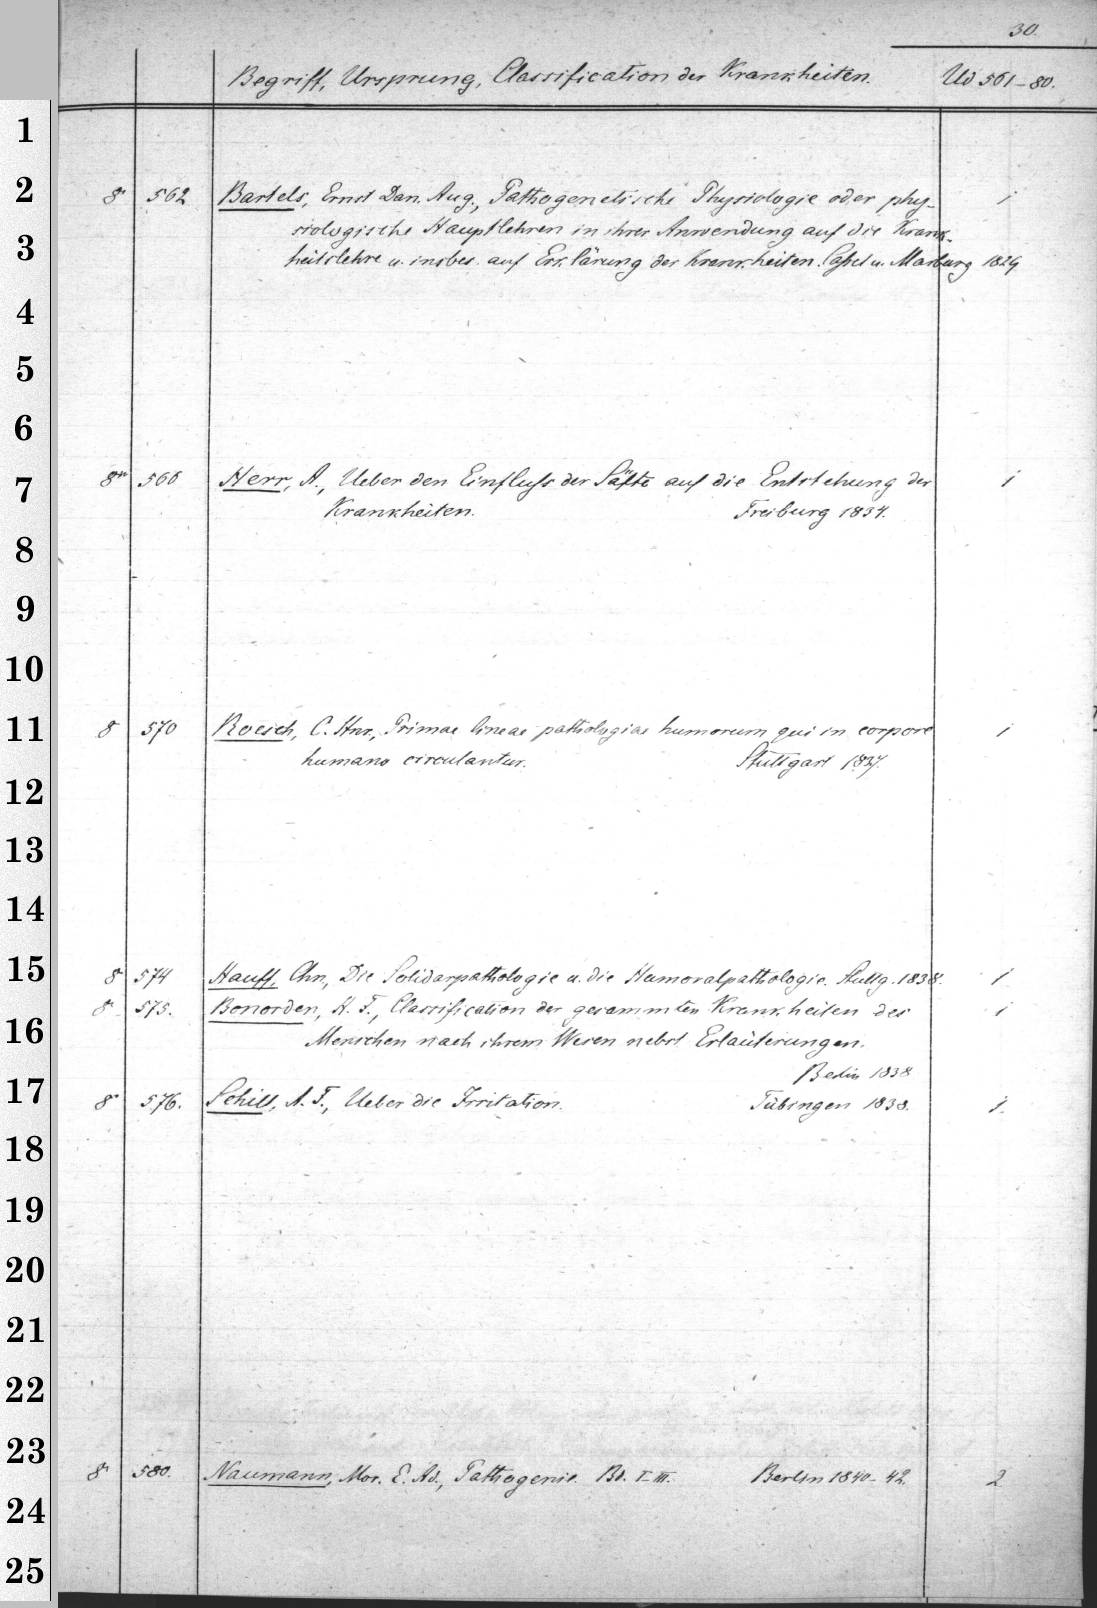 30.
Begriff, Ursprung, Classification der Krankheiten. Ud 561-80.
1
2
8 562 Bartels, Ernst Dan. Aug., Pathogenetische Physiologie oder phy- 1
siologische Hauptlehren in ihrer Anwendung auf die Krank-
3
heitslehre u. insbes. auf Erklärung der Krankheiten. Cassel u. Marburg 1829
4
5
6
7
8 566 Herr, A., Ueber den Einfluss der Säfte auf die Entstehung der 1
Krankheiten. Freiburg 1834.
8
9
10
11
8 570 Roesch, C. Hnr., Primae lineae pathologiae humorum qui in corpore 1
humano circulantur. Stuttgart 1837.
12
13
14
15
8 574 Hauff, Chn., Die Solidarpathologie u. die Humoralpathologie. Stuttg. 1838. 1
8 575. Bonorden, H. F., Classification der gesammten Krankheiten des 1
16
Menschen nach ihrem Wesen nebst Erläuterungen.
Berlin 1838
17
8 576. Schill, A. F., Ueber die Irritation. Tübingen 1838. 1.
18
19
20
21
22
23
8 580. Naumann, Mor. E. Ad., Pathogenie. Bd. I-III. Berlin 1840-42. 2
24
25